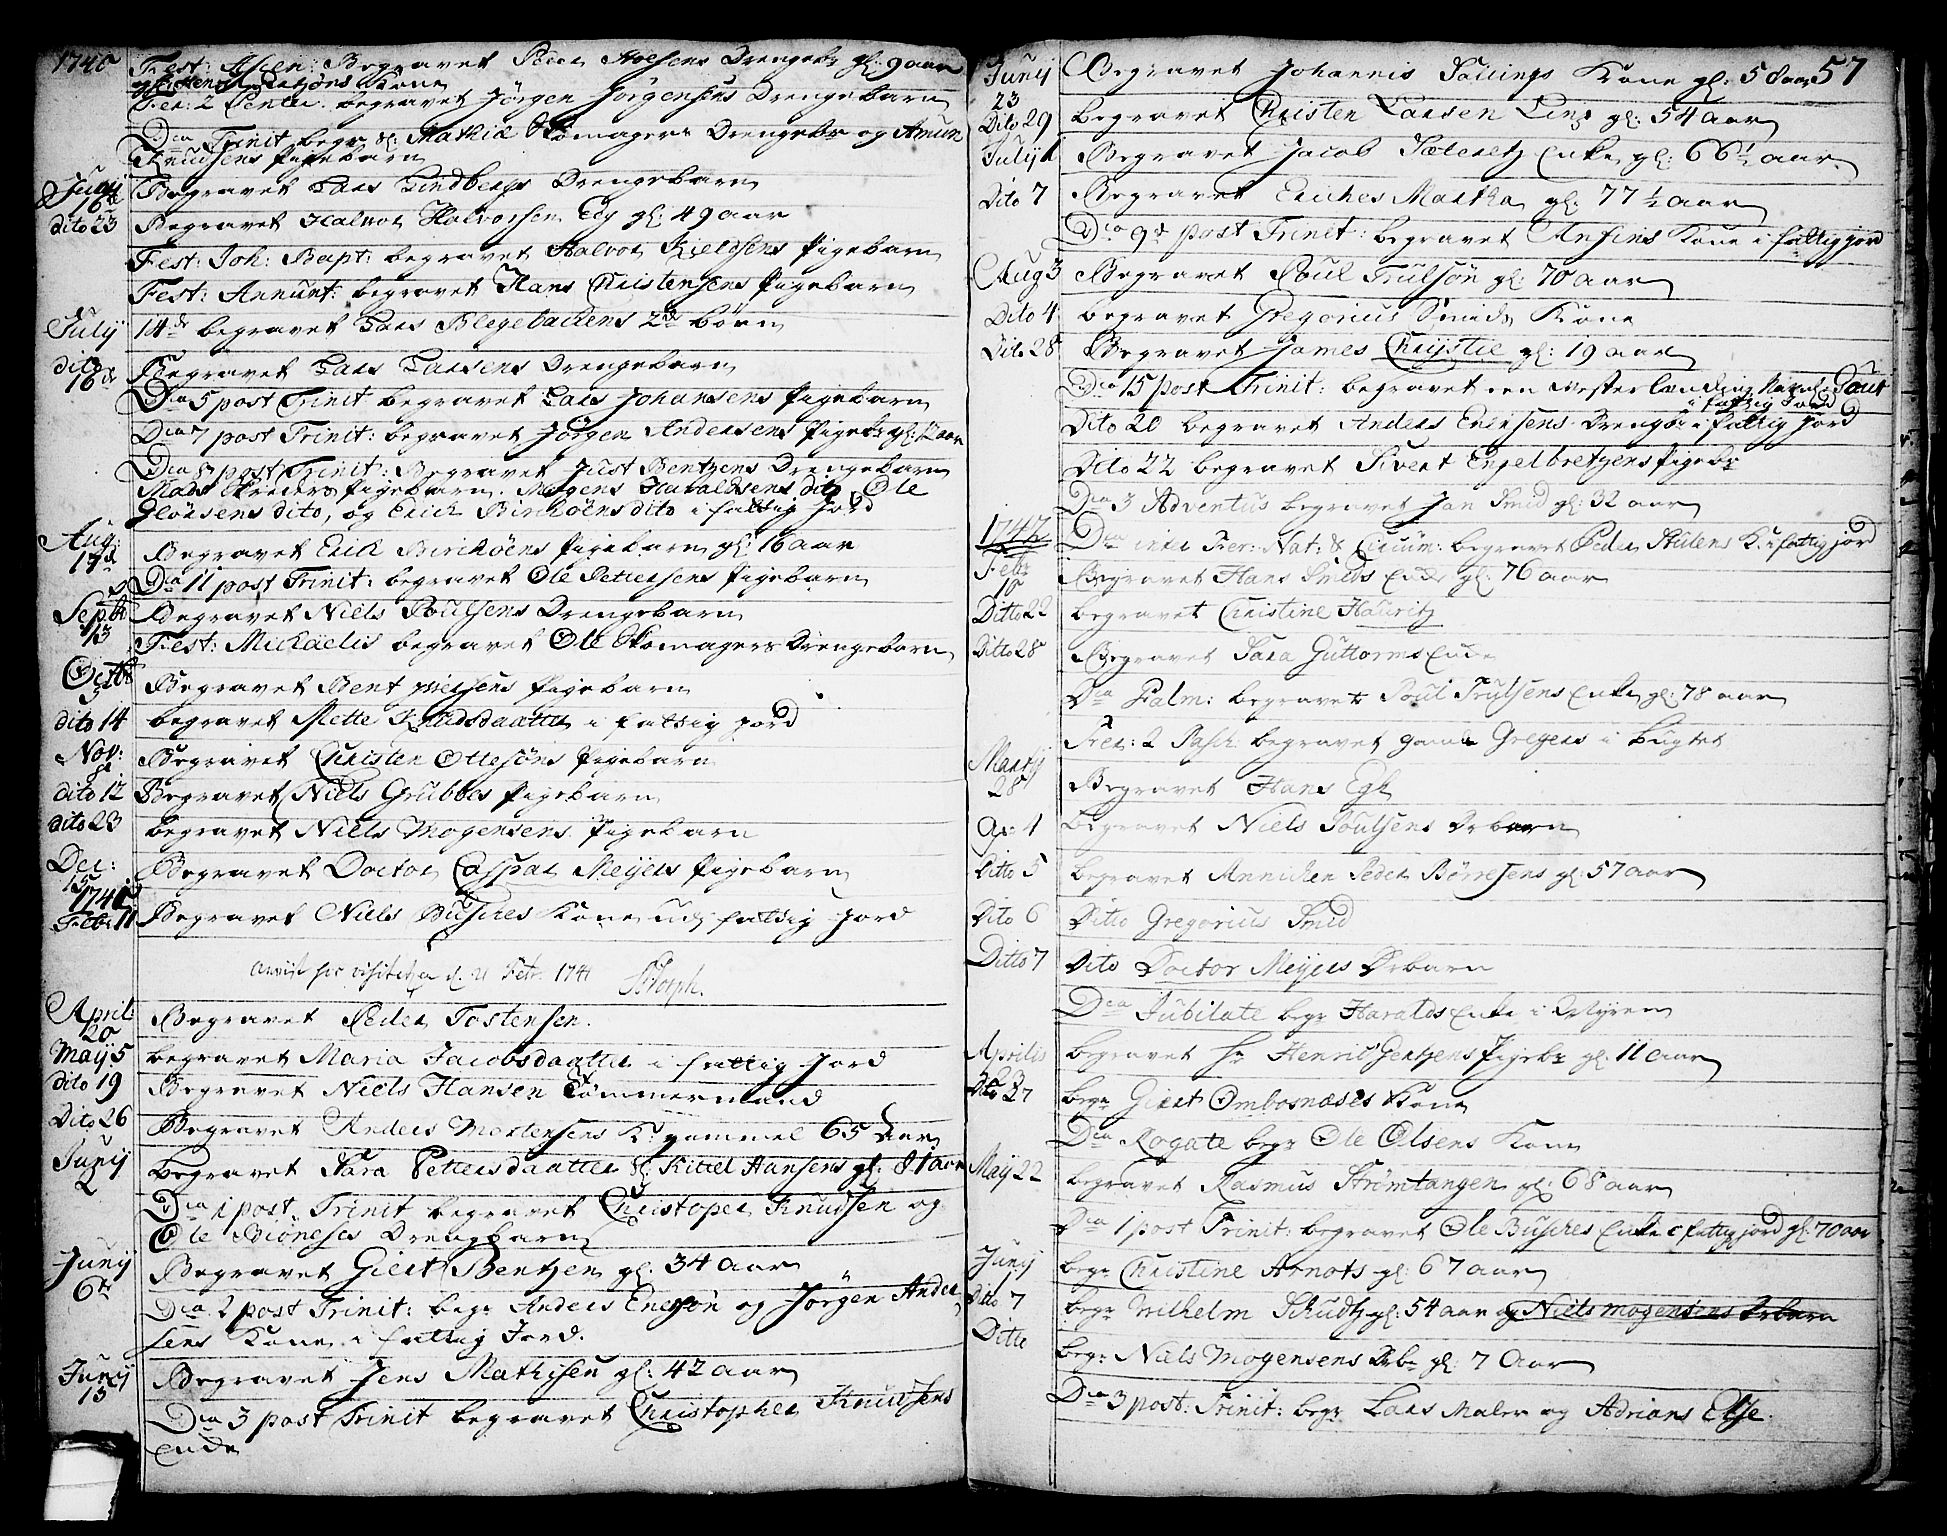 1740
Fest: Ascen: Begravet Peder Aolsens Drengebr gl: 9 aar
Fer: 2 Pente: begravet Jörgen Jörgensens Drengebarn
Dca Trinit begr Mathis Skomagers Drengebr og Amun
Knudsens Pigebarn
Juny 16de Begravet Lars Lindbergs Drengebarn
dito 23 Begravet Halvor Halvorsen Edy gl: 49 aar
Fest: Joh: Bapt: begravet Halvor Kieldsens Pigebarn
Fest: Annunt: begravet Hans Christensens Pigebarn
July 14de begravet Lars Blegebackens 2de börn
dito 16de Begravet Lars Larsens Drengebarn
Dca 5 post Trinit begravet Lars Johansens Pigebarn
Dca 7 post Trinit: begravet Jörgen Andersens Pigebr gl: 12 aar
Dca 8 post Trinit: Begravet Just Bentzens Drengebarn
Mads Skreders Pigebarn. Mogens Haraldsens dito, Ole
Glörsens dito, og Erich Birchöens dito i fattig Jord
Aug: 17de Begravet Erik Birchöens Pigebarn gl: 16 aar
Dca 11 post Trinit: begravet Ole Pettersens Pigebarn
Septbr 13 Begravet Niels Poulsens Drengebarn
Fest: Michaelis begravet Ole Skomagers Drengebarn
Octbr 5 Begravet Bent Nielsens Pigebarn
dito 14 begravet Mette Knudsdaatter i fattig jord
Nov: 8 Begravet Christen Ottesöns Pigebarn
dito 12 Begravet Niels Grubbes Pigebarn
dito 23 begravet Niels Mogensens Pigebarn
Dec: 15 Begravet Doctor Caspar Meyers Pigebarn
1741
Febr 11 Begravet Niels Busches Kone udj fattig Jord
d. 21 Febr. 1741
April: 20 Begravet Peder Tostensen.
Maij 5 begravet Maria Jacobsdaatter i fattig Jord
dito 19 Begravet Niels Hansen Tömmermand
Dito 26 Begravet Anders Mortensens K: gammel 65 Aar
Junij 2 begravet Sara Pettersdaatter Kittel Hansens gl: 81 aar
Dca 1 post Trinit begravet Christopher Knudsen og
Ole Biöneses Drengbarn
Junij 6te Begravet Giert Bentzen gl: 34 aar
Dca 2 post Trinit: begr Anders Enersön og Jörgen Ander
sens Kone i fattig Jord.
Junij 15 Begravet Jens Mathisen gl: 42 aar
Dca 3 post Trinit begravet Christopher Knudsens
Encke
57
Junij 23 Begravet Johannis Sallings Kone gl: 5 aar
Dito 29 begravet Christen Larsen Lins gl: 54 aar
Julij 1 Begravet Jacob Enke gl: 66½ aar
Dito 7 Begravet Eriches Martha gl: 77½ aar
Dca 9de post Trinit: begravet Ansens Kone i fattig jord
Aug 3 Begravet Poul Trulsön gl: 70 aar
Dito 4 begravet Gregorius Smids Kone
Dito 28 Begravet James Chrystie gl: 19 aar
Dca 15 post Trinit: begravet en vesterlænding Navnl: Poul
i fattig Jord
Dito 20 begravet Anders Enersens Drengbr i fattig jord
Dito 22 begravet Sivert Engelbretzens Pigebr
Dca 3 Adventus begravet Jan Smid gl: 32 aar
1742 Dca inter Fer: Nat: & Circum: begravet Peder Stulens K: i fattig jord
Febr 10 Begravet Hans Smeds Encke gl: 76 aar
Ditto 22 begravet Christine Hauritz
Ditto 28 Begravet Sara Guttorms Encke
Dca Palm: begravet Poul Trulsens Enke gl: 78 aar
Fer: 2 Pasch: begravet gamle Gregers i Bugtet
Martij 28 Begravet Hans Egh
Ap: 1 begravet Niels Poulsens Drbarn
Dito 5 begravet Annichen Peder Börresens gl: 57 aar
Dito 6 Ditto Gregorius Smed
Ditto 7 Dito Doctor Meyers Drbarn
Dca Jubilate begr Haralds Enke i Myren
Aprilis 23 begravet Hr Henric Gertzens Pigebr gl: 11 aar
Dito 27 begr Giert Ombosnæses Kone
Dca Rogate begr Ole Olsens Kone
Maij 22 begravet Rasmus Strömtangen gl: 68 aar
Dca 1 post Trinit: begravet Ole Busches Enke i fattig jord gl: 70 aar
Junij begr Christine Arnots gl: 67 aar
Dito 7 begr Wilhelm Schudtz gl: 54 aar og Niels Mogensens Drbarn
Ditte begr Niels Mogensens Drbr gl: 7 Aar
Dca 3 post: Trinit: begr Lars Maler og Adrians Else.